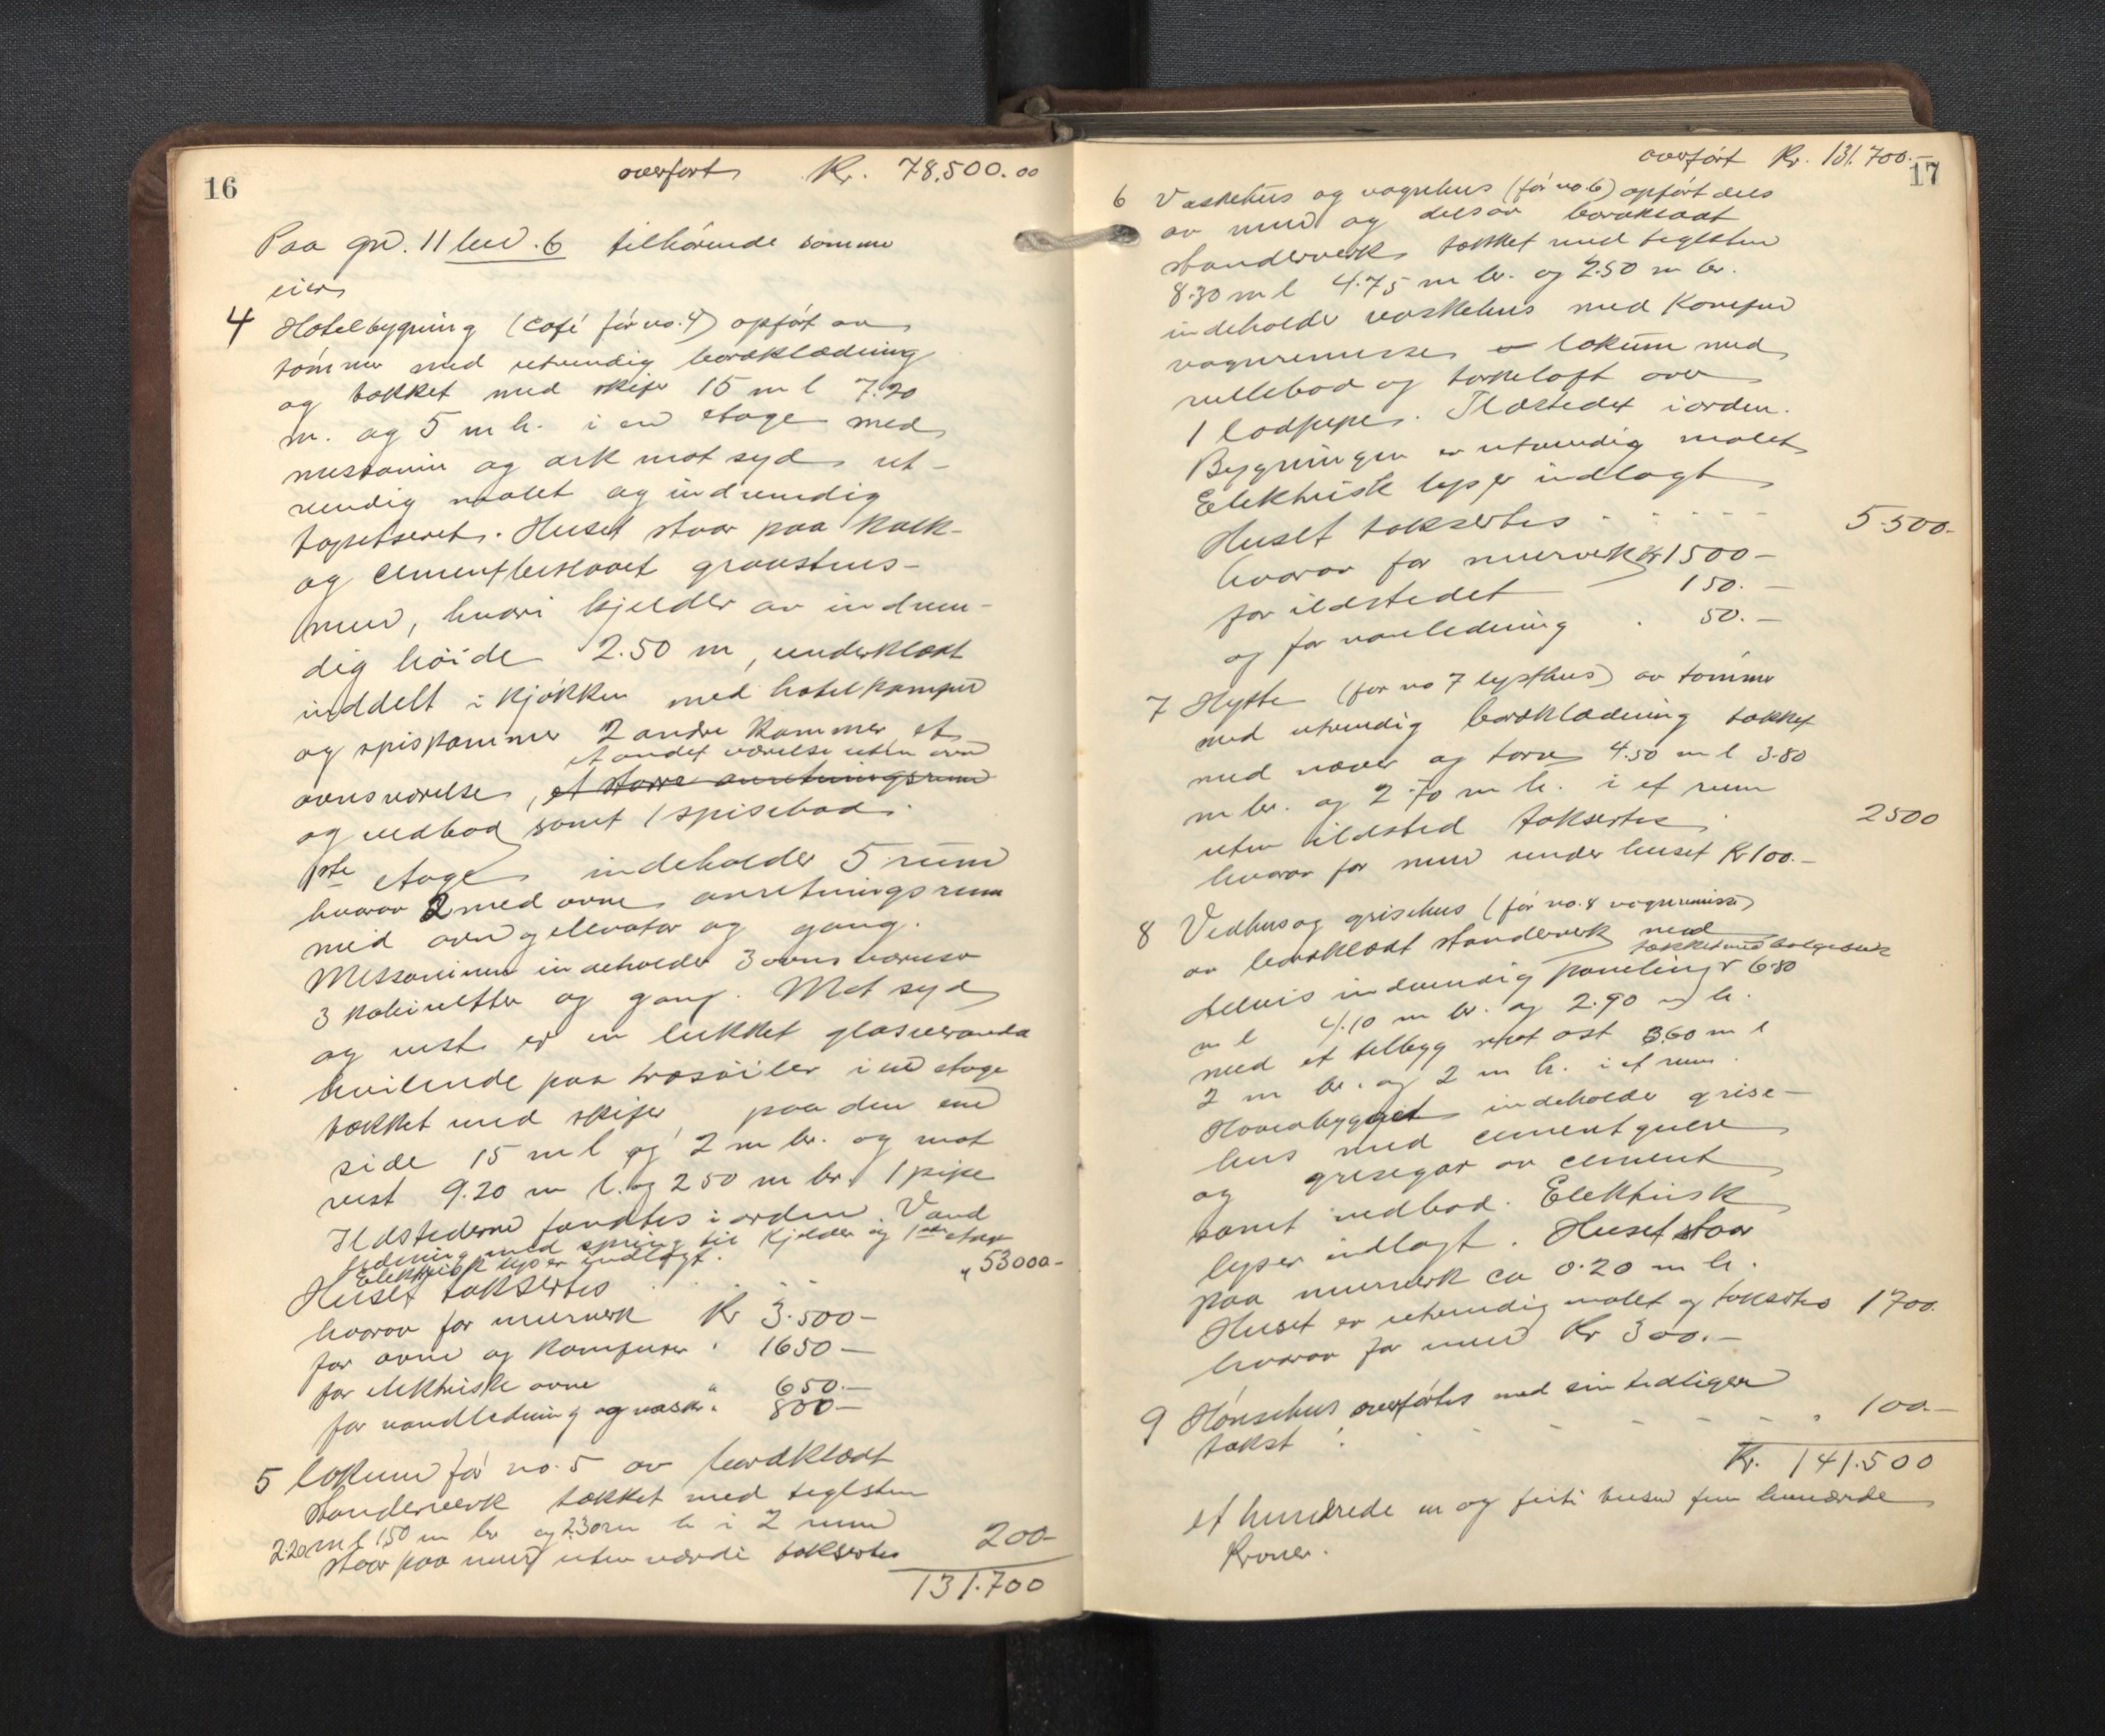 16
overført Kr. 78,500.00
Paa gn. 11 bn. 6 tilhørende samme
eier
4 Hotelbygning (café før no. 4) opført av
tømmer med utvendig bordklædning
og tækket med skifer 15 m l 7.20
m. og 5 m h. i en etage med
messanin og ark mot syd ut-
vendig malet og indvendig
tapetseret. Huset staar paa kalk-
og cementbeslaaet graastens-
mur, hvori kjelder av indven-
dig høide 2.50 m, underklædt
inddelt i kjøkken med hotelkomfur
og spiskammer 2 andre kammer et
et andet værelse uten ovn
ovnsværelse, et større anretningsrum
og vedbod samt 1 spisebod.
1ste etage indeholder 5 rum
hvorav 2 med ovne anretningsrum
med ovn og elevator og gang.
Messaninen indeholder 3 ovnsværelser
3 kabinetter og gang. Mot syd
og vest er en lukket glasveranda
hvilende paa træsøiler i en etage
tækket med skifer, paa den ene
side 15 m l og 2 m br. og mot
vest 9.20 m l. og 250 m br. 1 pipe
Ildstederne fandtes i orden. Vand
ledning med spring til kjelder og 1ste etage
Elektrisk lys er indlagt.
Huset takseres . . . . „ 53000-
hvorav for murverk Kr 3.500-
for ovne og komfurer " 1650-
for elektriske ovne " 650.-
for vandledning og vask " 800-
5 Lokum før no. 5 av bordklædt
standerverk tækket med teglsten
2.20 m l 1.50 m br og 2.30 m h i 2 rum
staar paa mur uten værdi takseres 200-
131.700
17
overført Kr. 131.700.-
6 Vaskehus og vognhus (før no. 6) opført dels
av mur og dels av bordklædt
standerverk tækket med teglsten
8.30 m l 4.75 m br. og 2.50 m h.
indeholder vaskehus med komfur
vognremisse lokum med
rullebod og tørkeloft over
1 lodpipe. Ildstedet i orden.
Bygningen er utvendig malet
Elektrisk lys er indlagt
Huset takseres . . . . . 5.500-
hvorav for murverk Kr 1500-
for ildstedet 150.-
og for vandledning . 50.-
7 Hytte (før no 7 lysthus) av tømmer
med utvendig bordklædning tækket
med næver og torv 4.50 m l 3.80
m br. og 2.70 m h. i et rum
uten ildsted takseres . 2500
hvorav for mur under huset Kr 100.-
8 Vedhus og grisehus (før no. 8 vognremisse)
av bordklædt standerverk med
tækket med bølgeblik
delvis indvendig paneling 6.80
m l 4.10 m br. og 2.90 m h.
med et tilbygg mot øst 3.60 m l
2 m br. og 2 m h. i et rum.
Hovedbygget indeholder grise-
hus med cementgulv
og grisegar av cement
samt vedbod. Elektrisk
lys er indlagt. Huset staar
paa murverk ca 0.20 m h.
Huset er utvendig malet og takseres 1700.
hvorav for mur Kr 300.-
9 Hønsehus overføres med sin tidligere
takst . . - - - - - . 100.-
Kr. 141.500
et hundrede en og firti tusen fem hundrede
Kroner.